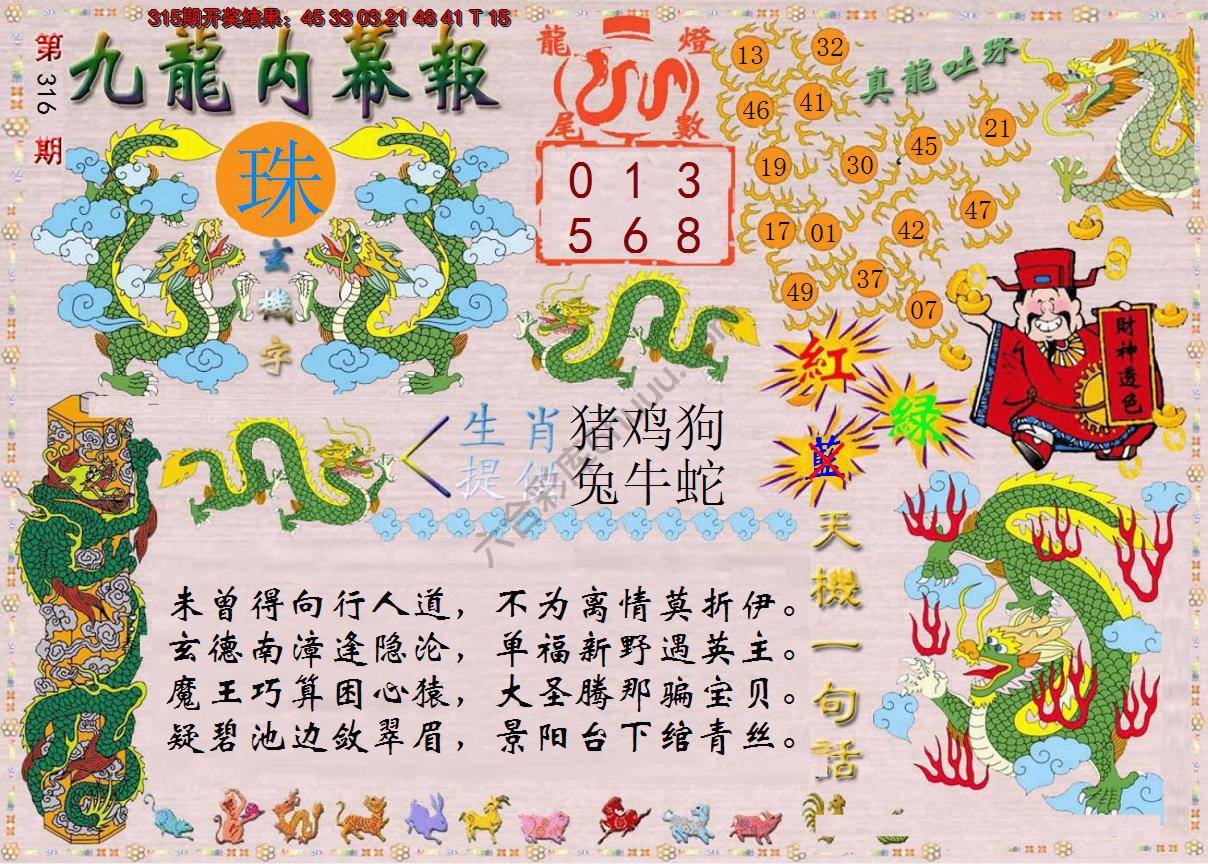 315期开奖结果：45 33 03 21 48 41 T 15
第316期
九龍内幕報
龍燈尾數
真龍吐珠
珠
玄機字
0 1 3
5 6 8
13
32
46
41
19
30
45
21
17
01
42
47
49
37
07
財神透色
紅
綠
藍
生肖
猪鸡狗
提供
兔牛蛇
天機一句話
未曾得向行人道，不为离情莫折伊。
玄德南漳逢隐沦，单福新野遇英主。
魔王巧算困心猿，大圣腾那骗宝贝。
疑碧池边敛翠眉，景阳台下绾青丝。